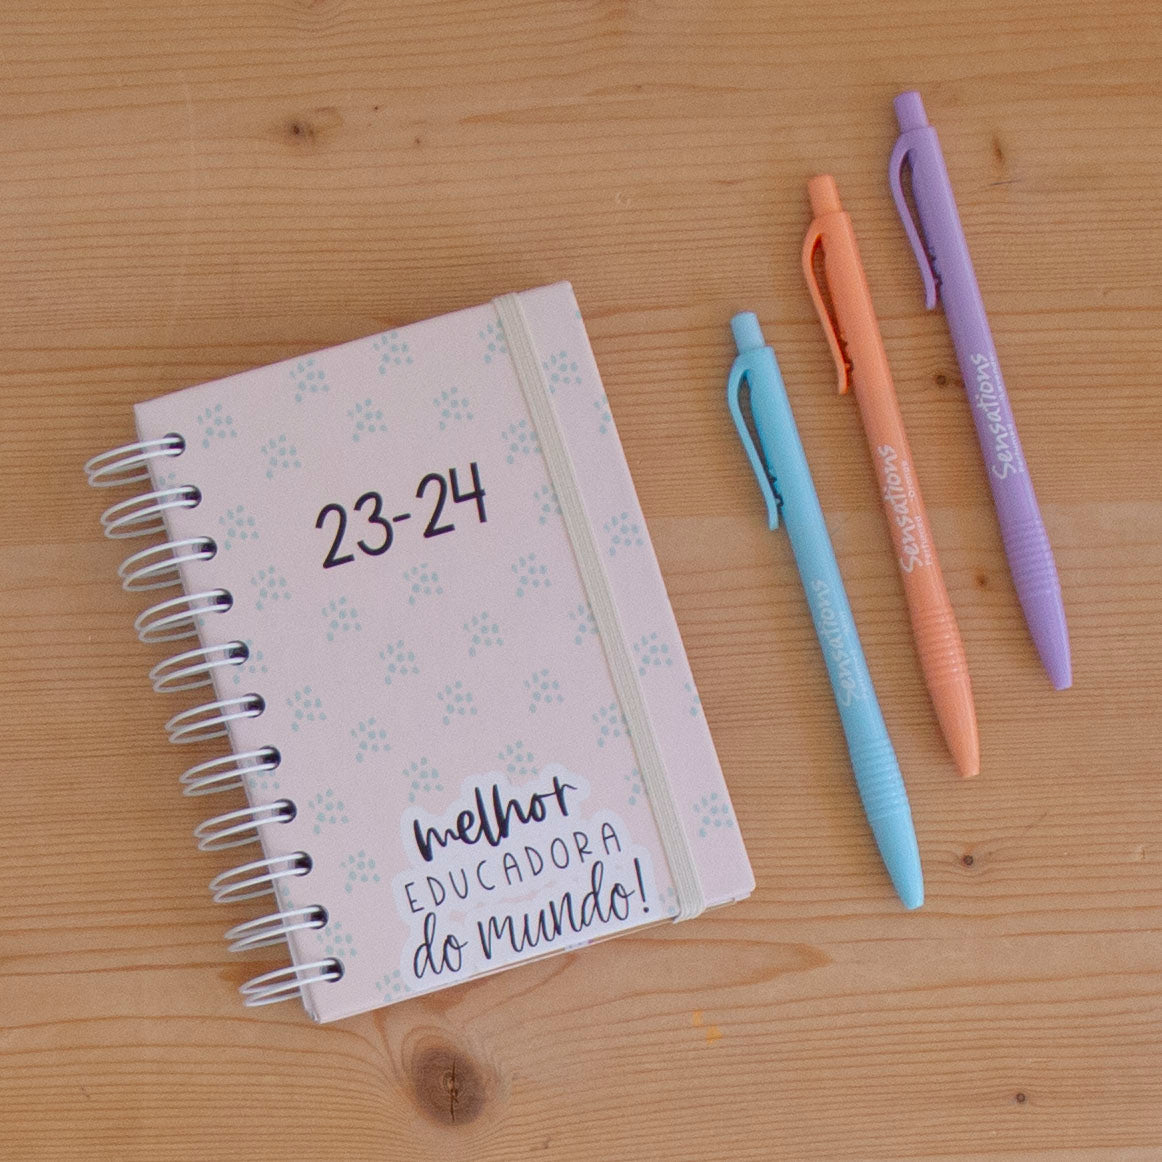 23-24
melhor
EDUCADORA
do mundo!
Sensations
Sensations
Sensations